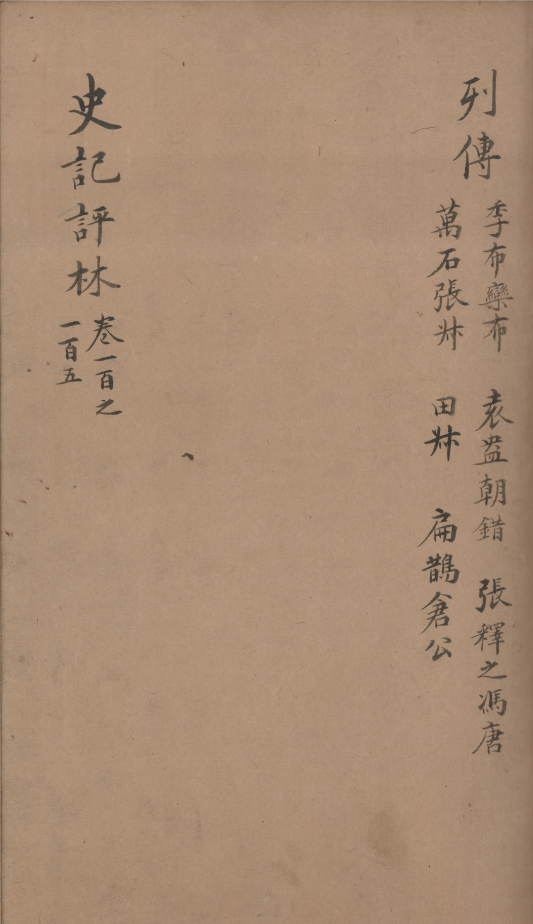 列傳
季布欒布 袁盎朝錯 張釋之馮唐
萬石張叔 田叔 扁鵲倉公
史記評林
卷一百之
一百五